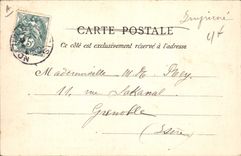 Imprimé
CARTE POSTALE
Ce côté est exclusivement réservé à l'adresse
Mademoiselle M.
11, rue Lakanal
Grenoble
(Isère)